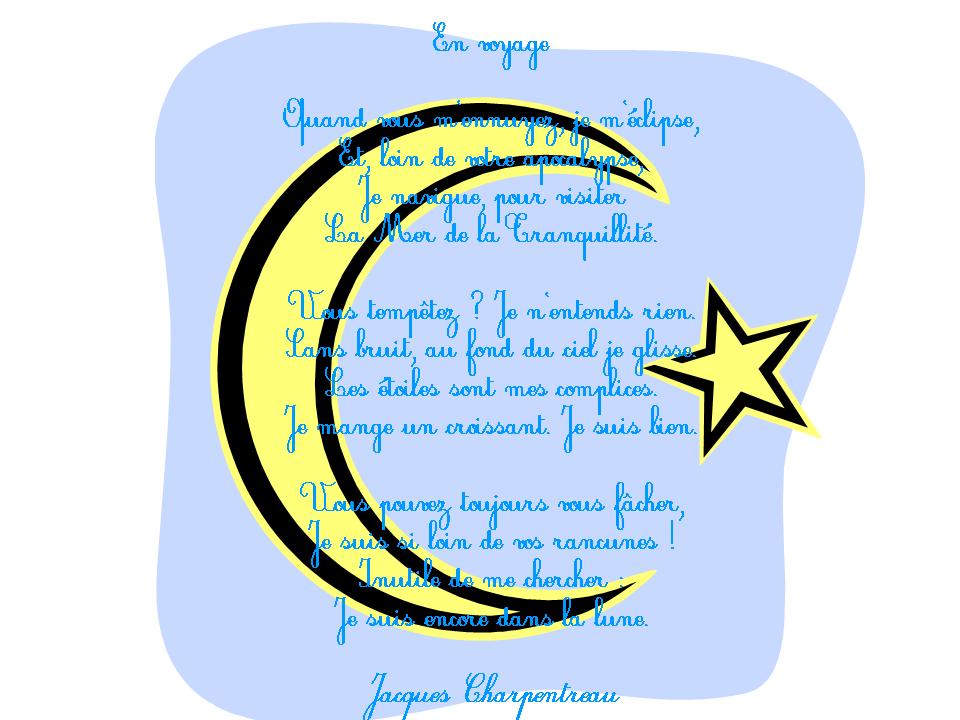 En voyage
Quand vous m'ennuyez, je m'éclipse,
Et, loin de votre apocalypse,
Je navigue, pour visiter
La Mer de la Tranquillité.
Vous tempêtez ? Je n'entends rien.
Sans bruit, au fond du ciel je glisse.
Les étoiles sont mes complices.
Je mange un croissant. Je suis bien.
Vous pouvez toujours vous fâcher,
Je suis si loin de vos rancunes !
Inutile de me chercher :
Je suis encore dans la lune.
Jacques Charpentreau